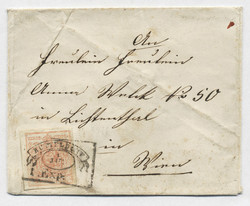 An
Fräulein Fräulein
Anna
No 50
in Lichtenthal
in
Wien